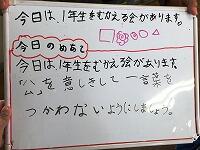 今日は、1年生をむかえる会があります。
今日のめあて
今日は、1年生をむかえる会があります
「公」を意しきして 言葉を
つかわないようにしましょう。